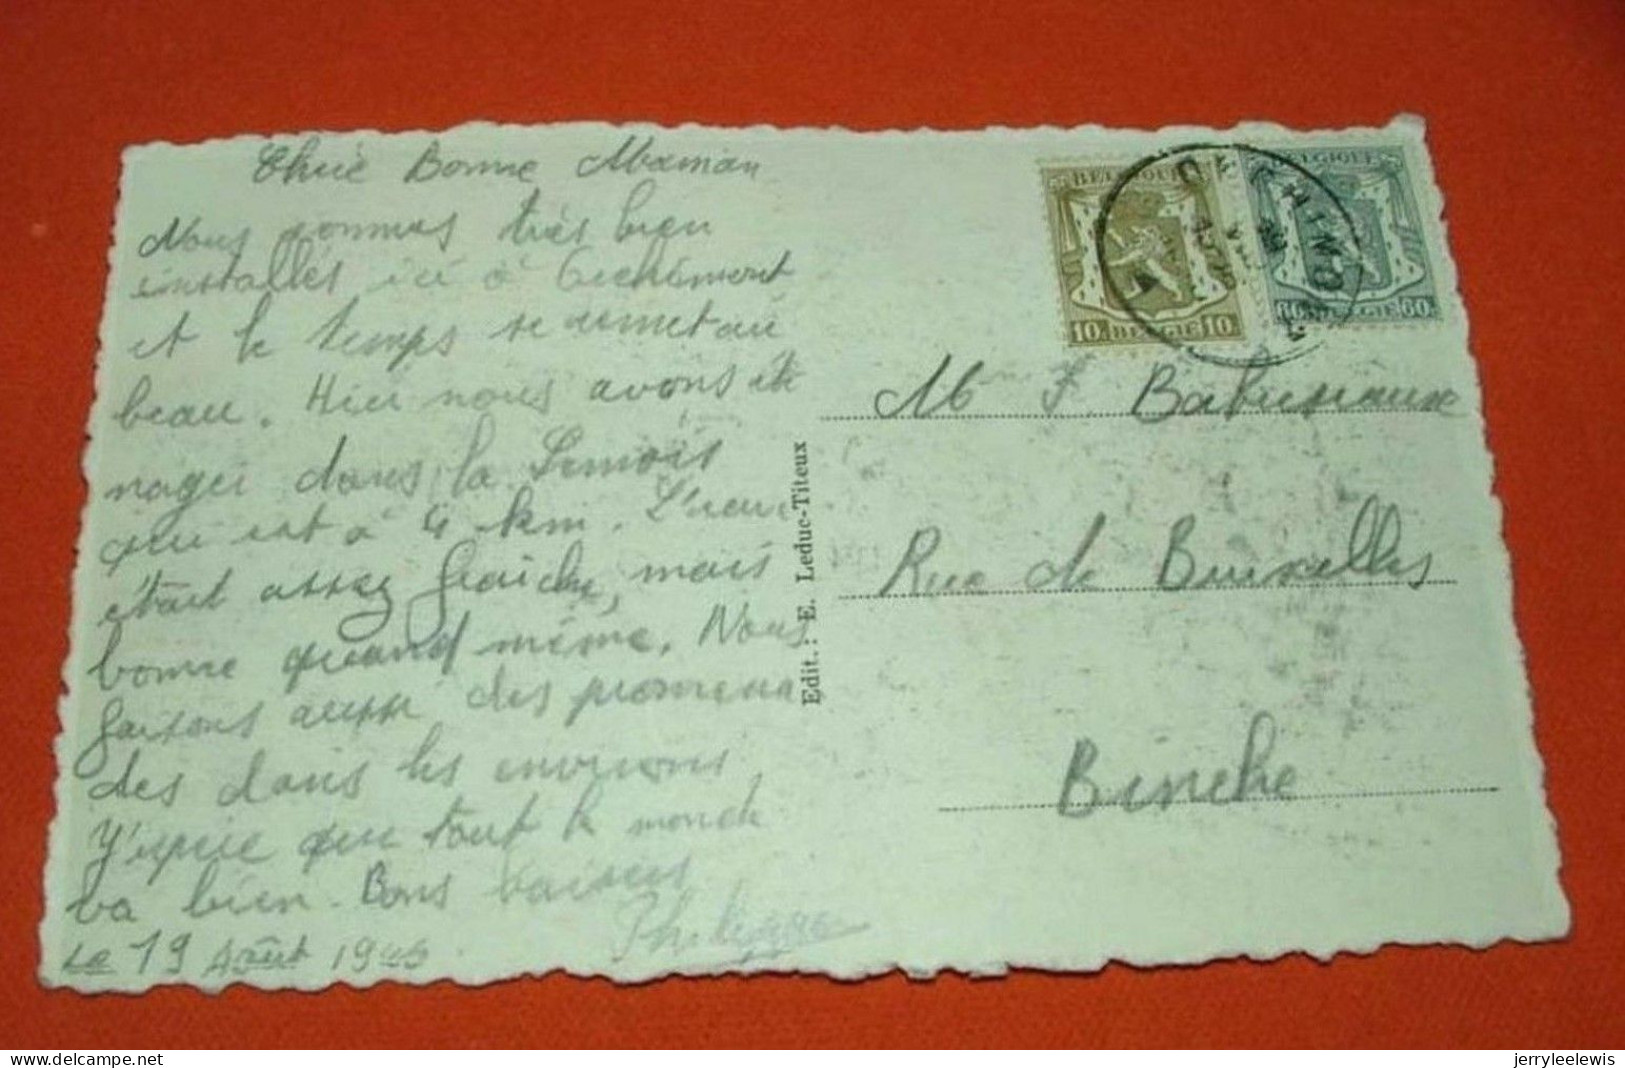 Chère Bonne Maman
Nous sommes très bien
installés ici à Gechimont
et le temps se remet au
beau. Hier nous avons été
nager dans la Semois
qui est à 4 km. L'eau
était assez fraîche, mais
bonne quand même. Nous
faisons aussi des promena
des dans les environs
J'espère que tout le monde
va bien. Bons baisers
Philippe
Le 19 Août 19
Edit. : E. Leduc-Titeux
BELGIQUE
10. BELGIË 10.
BELGIQUE
60. BELGIË 60.
M F Babusiaux
Rue de Bruxelles
Binche
www.delcampe.net
jerryleelewis